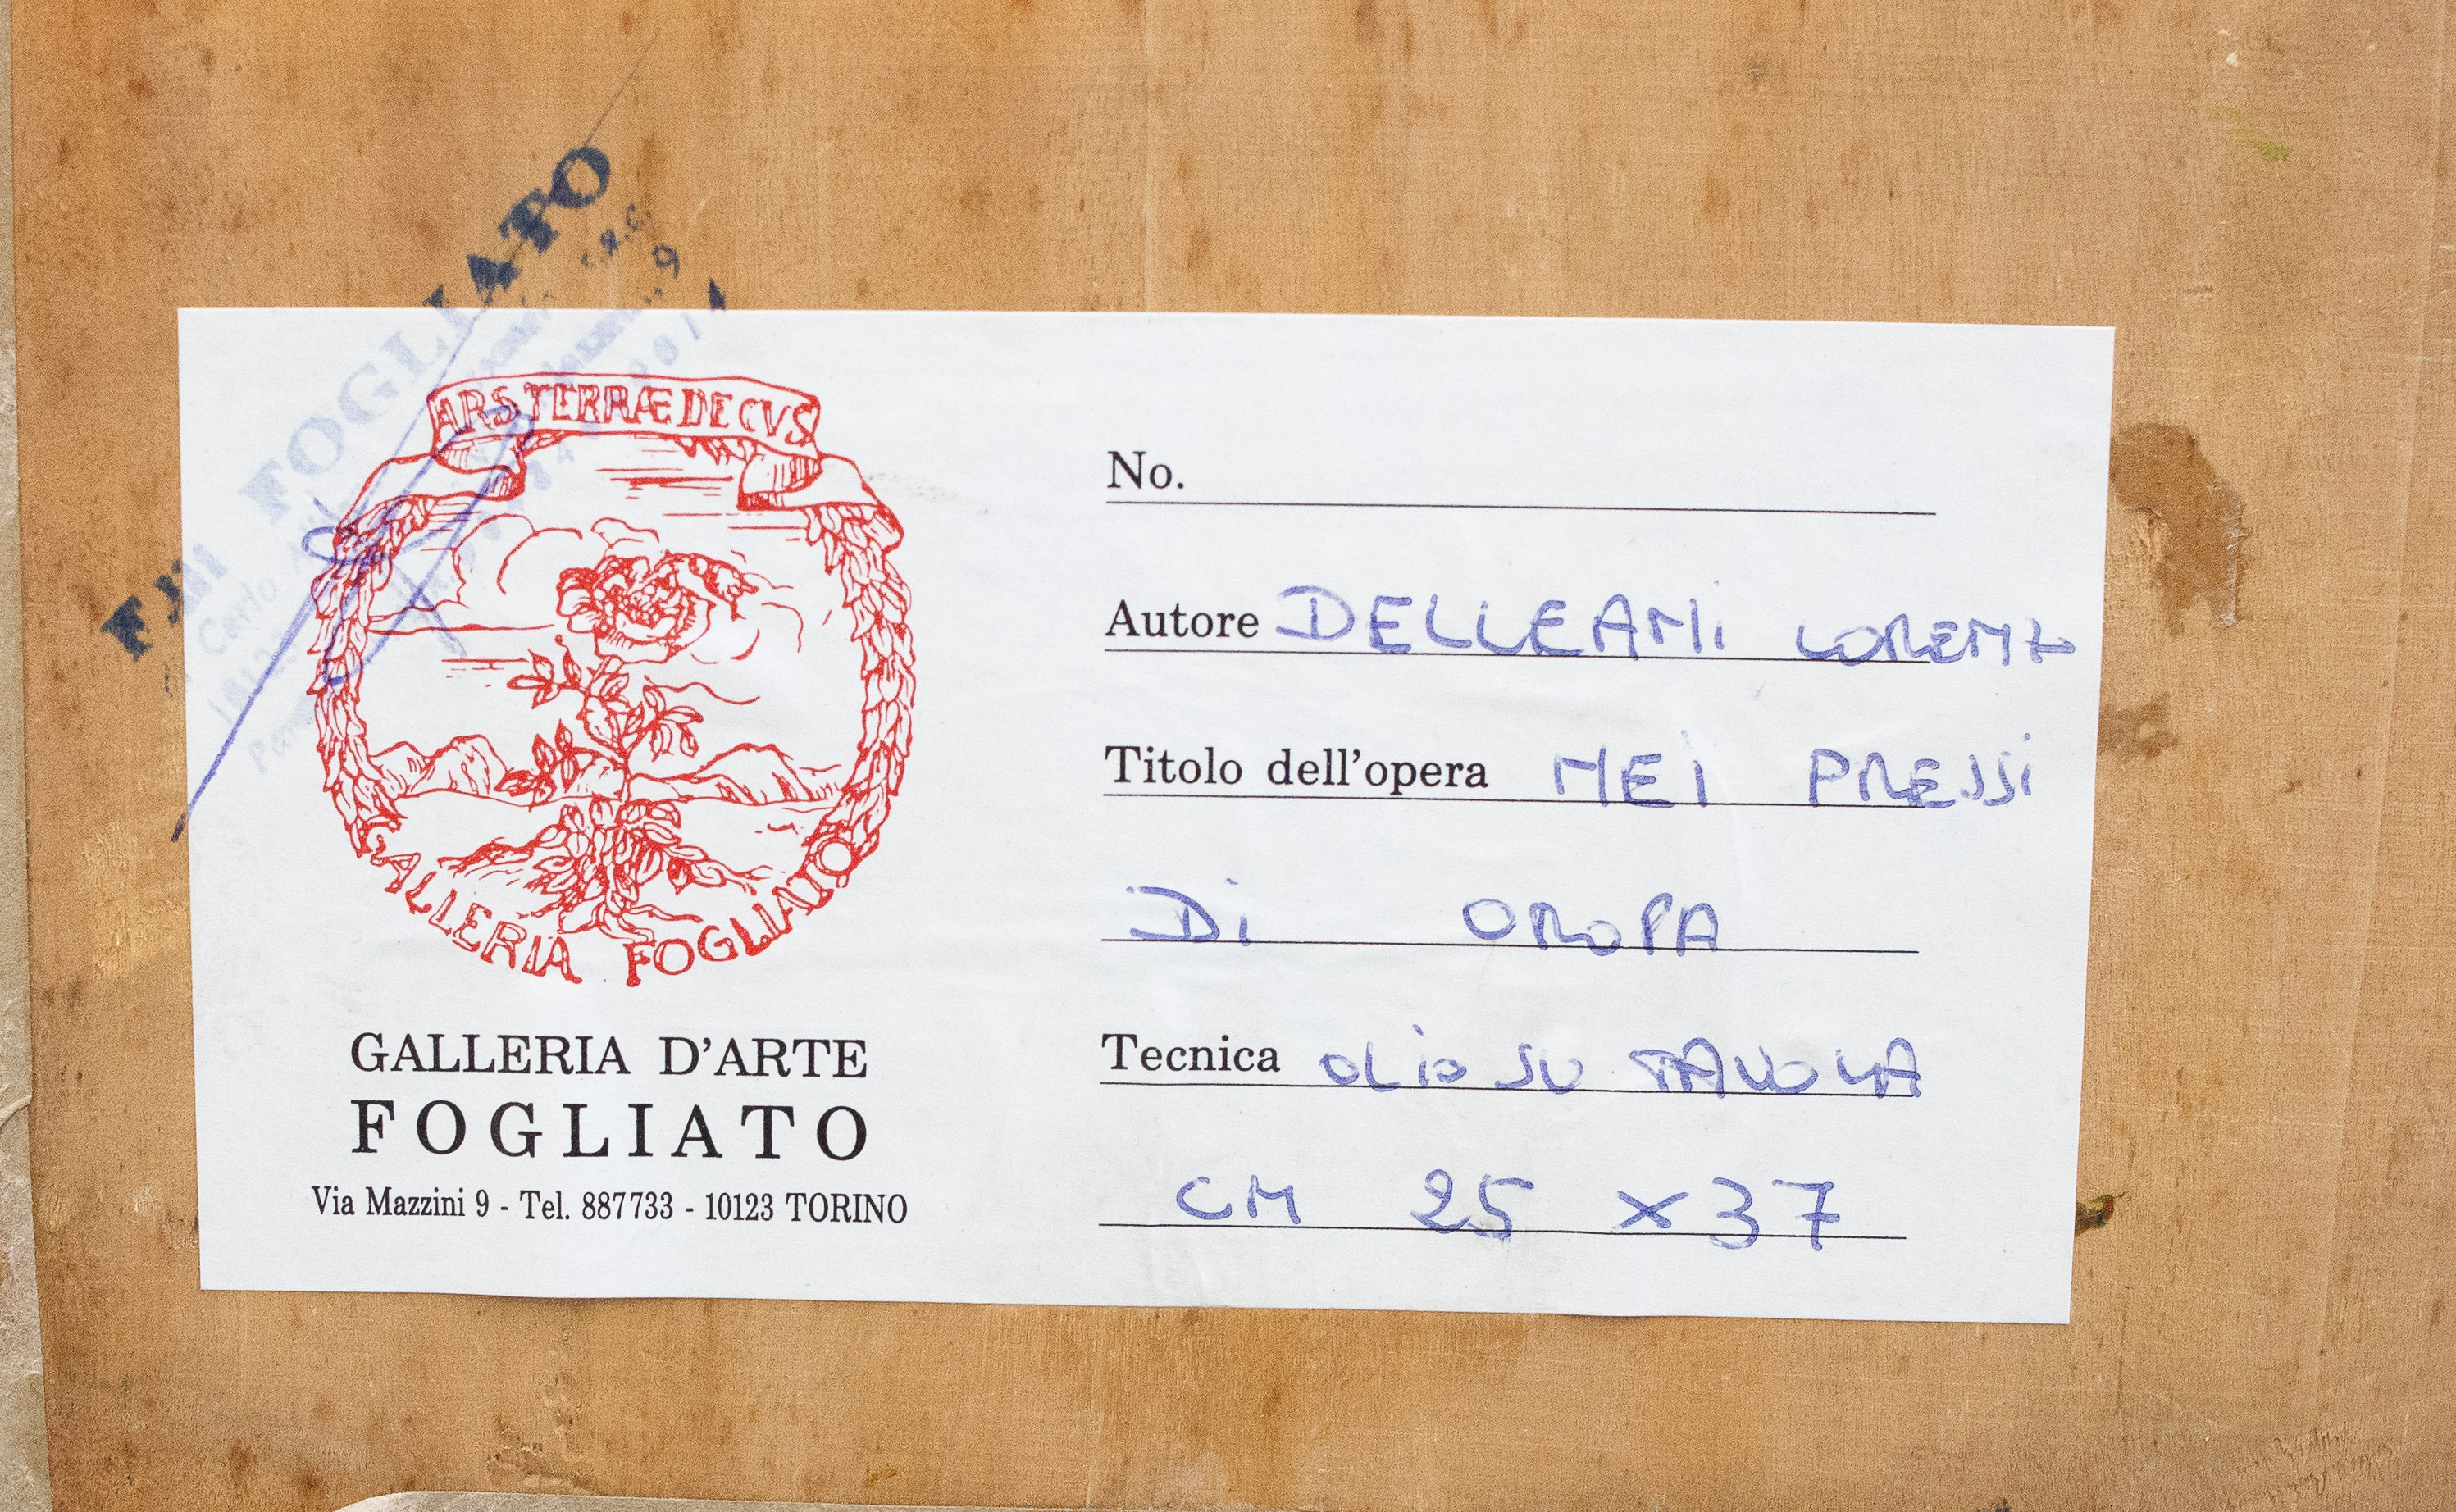 FOGLIATO
ARS TERRÆ DECVS
GALLERIA FOGLIATO
GALLERIA D'ARTE
FOGLIATO
Via Mazzini 9 - Tel. 887733 - 10123 TORINO
No.
Autore DELLEANI LORENZO
Titolo dell'opera NEI PRESSI
DI OROPA
Tecnica OLIO SU TAVOLA
CM 25 x 37